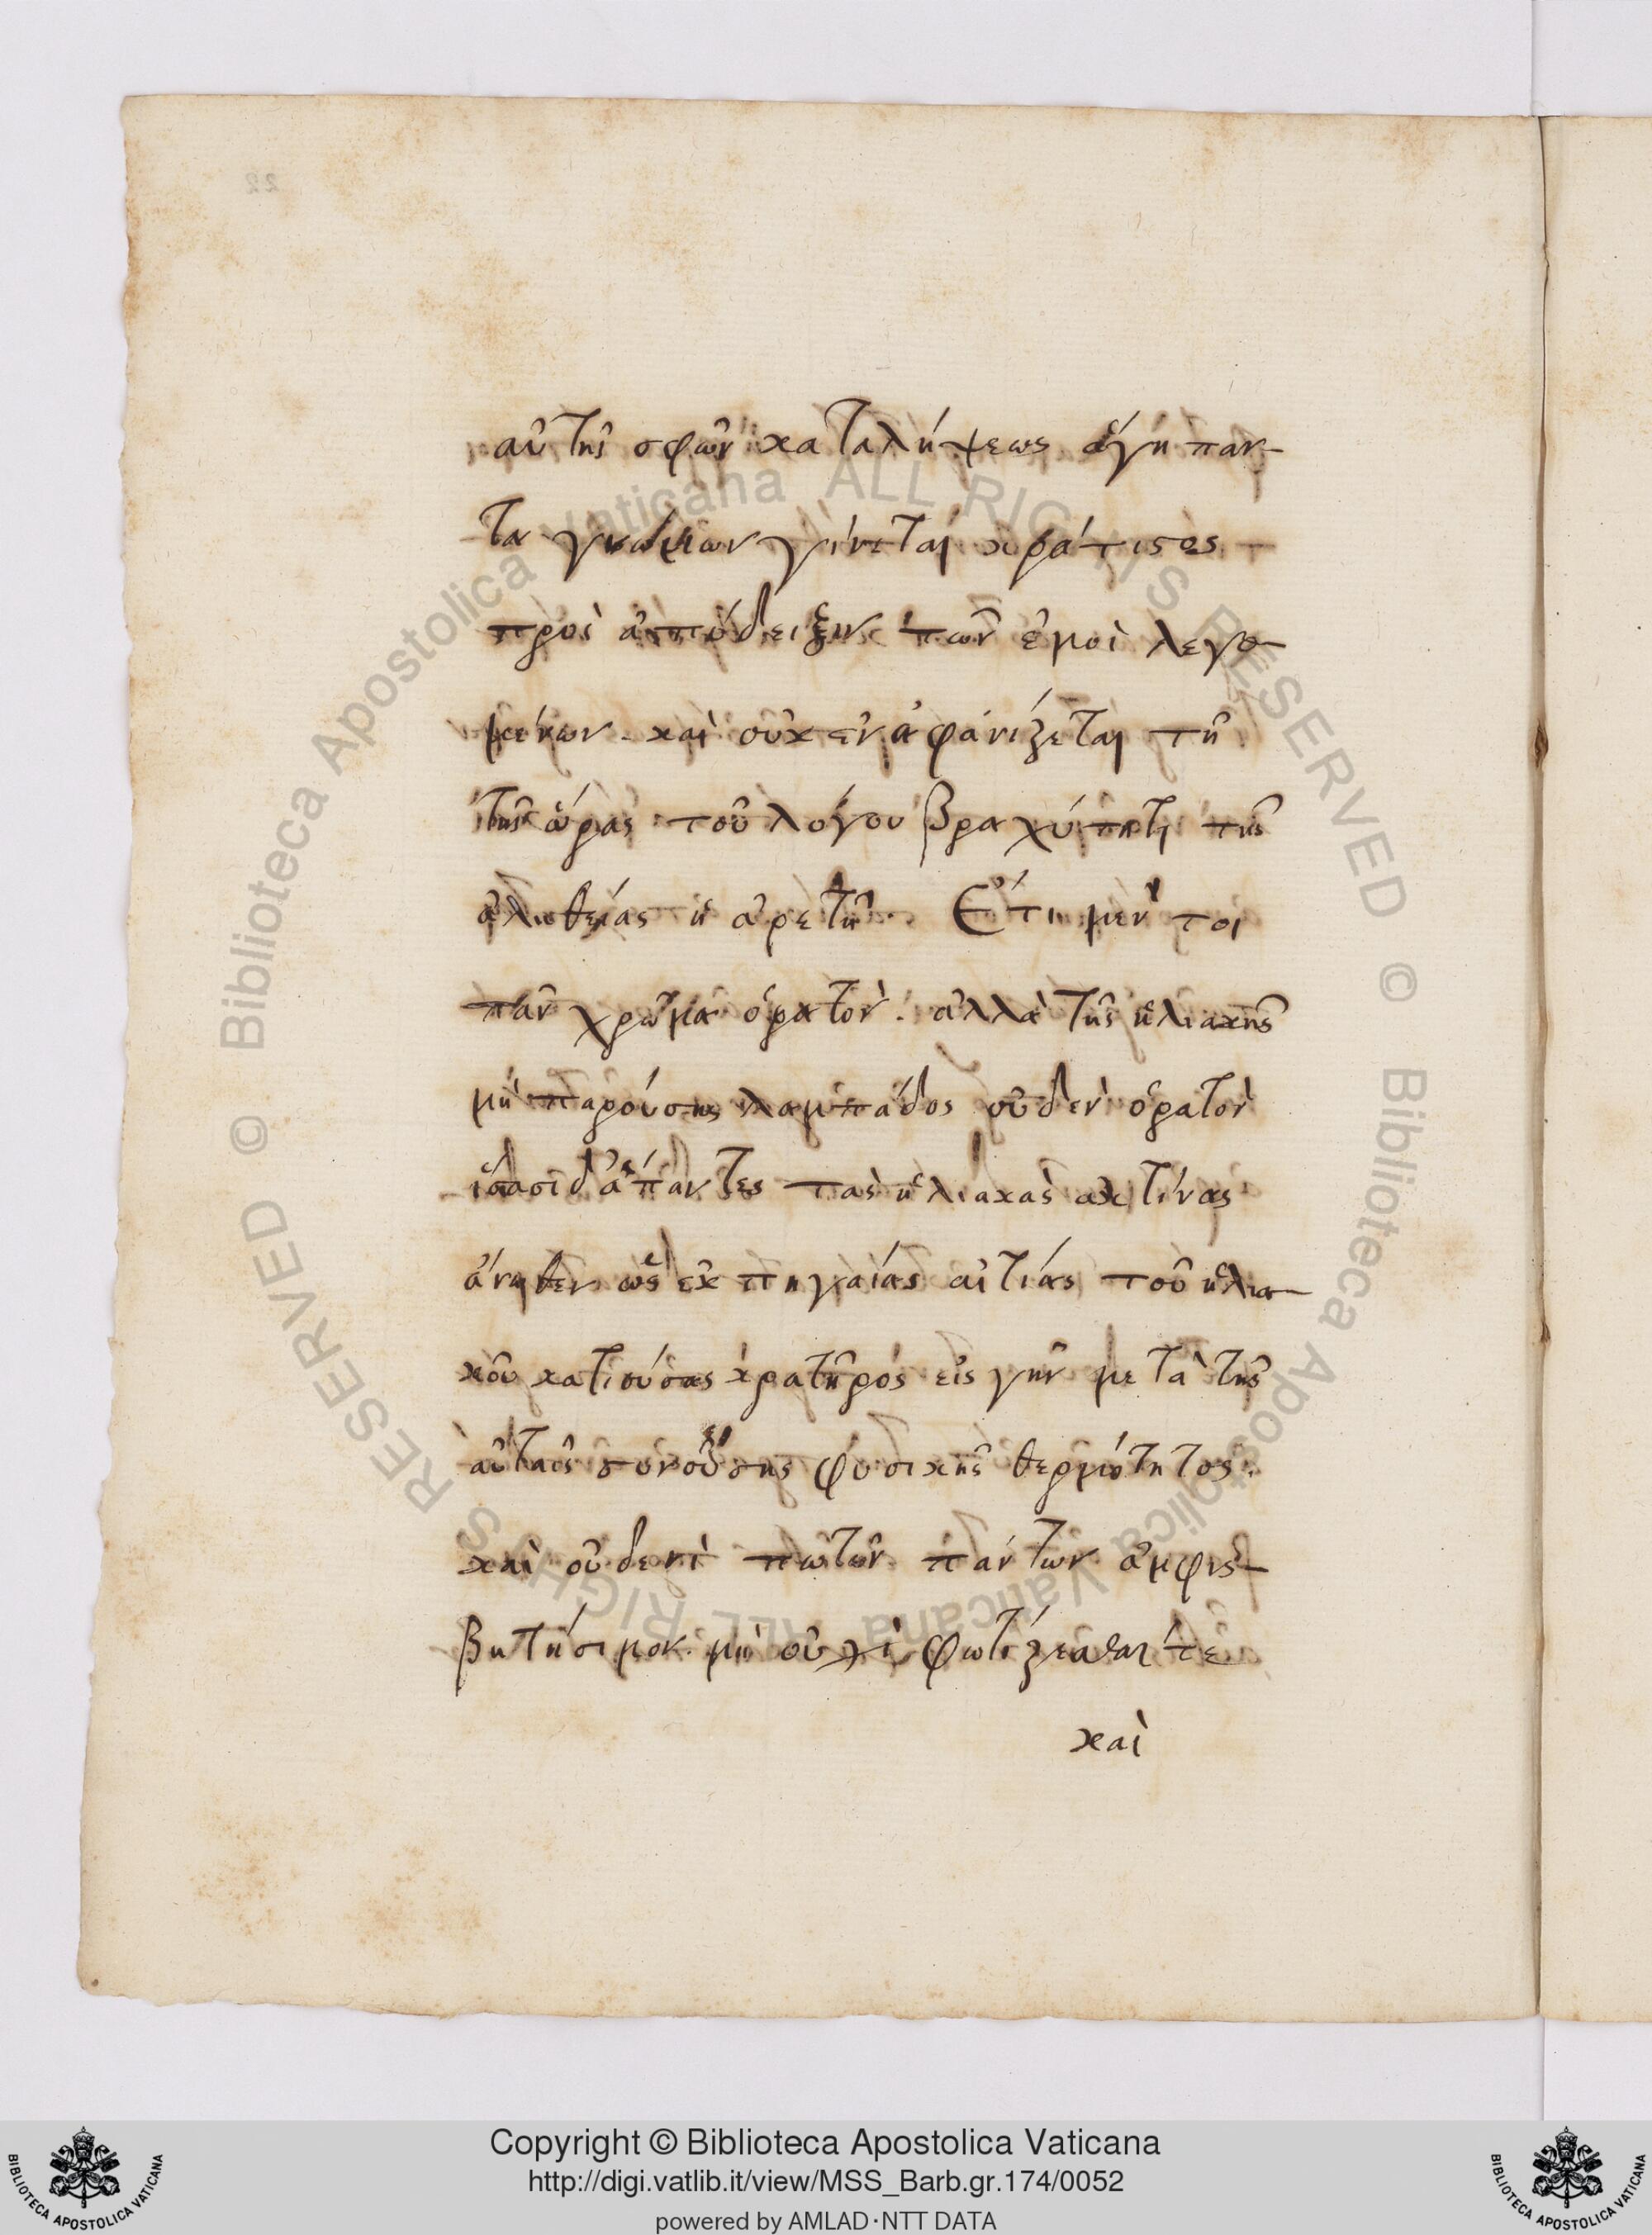 22
αὐτῆς σφῶν καταλήψεως ἁγὴ παν-
τα γνώμων γίνεται κράτιστος
πρὸς ἀπόδειξιν τῶν ἐμοὶ λεγο-
μένων. καὶ οὐκ ἐναφανίζεται τῇ
τῆς ὥρας τοῦ λόγου βραχύτητι τῆς
ἀληθείας ἡ ἀρετή. Ἔτι μέν τοι
πᾶν χρῶμα ὁρατόν. ἀλλὰ τῆς ἡλιακῆς
μὴ παρούσης λαμπάδος οὐδὲν ὁρατὸν
ἴσασι δ' ἅπαντες τὰς ἡλιακὰς ἀκτίνας
ἄνωθεν ὡς ἐκ πηγαίας αἰτίας τοῦ ἡλια-
κοῦ κατιούσας κρατῆρος εἰς γῆν μετὰ τῆς
αὐταῖς συνούσης φυσικῆς θερμότητος.
καὶ οὐδενὶ πω τῶν πάντων ἀμφισ-
βητήσιμον. μὴ οὐχὶ φωτίζεσθαι τε
καὶ
Copyright © Biblioteca Apostolica Vaticana
http://digi.vatlib.it/view/MSS_Barb.gr.174/0052
powered by AMLAD·NTT DATA
BIBLIOTECA APOSTOLICA VATICANA
BIBLIOTECA APOSTOLICA VATICANA
© Biblioteca Apostolica Vaticana ALL RIGHTS RESERVED
© Biblioteca Apostolica Vaticana ALL RIGHTS RESERVED